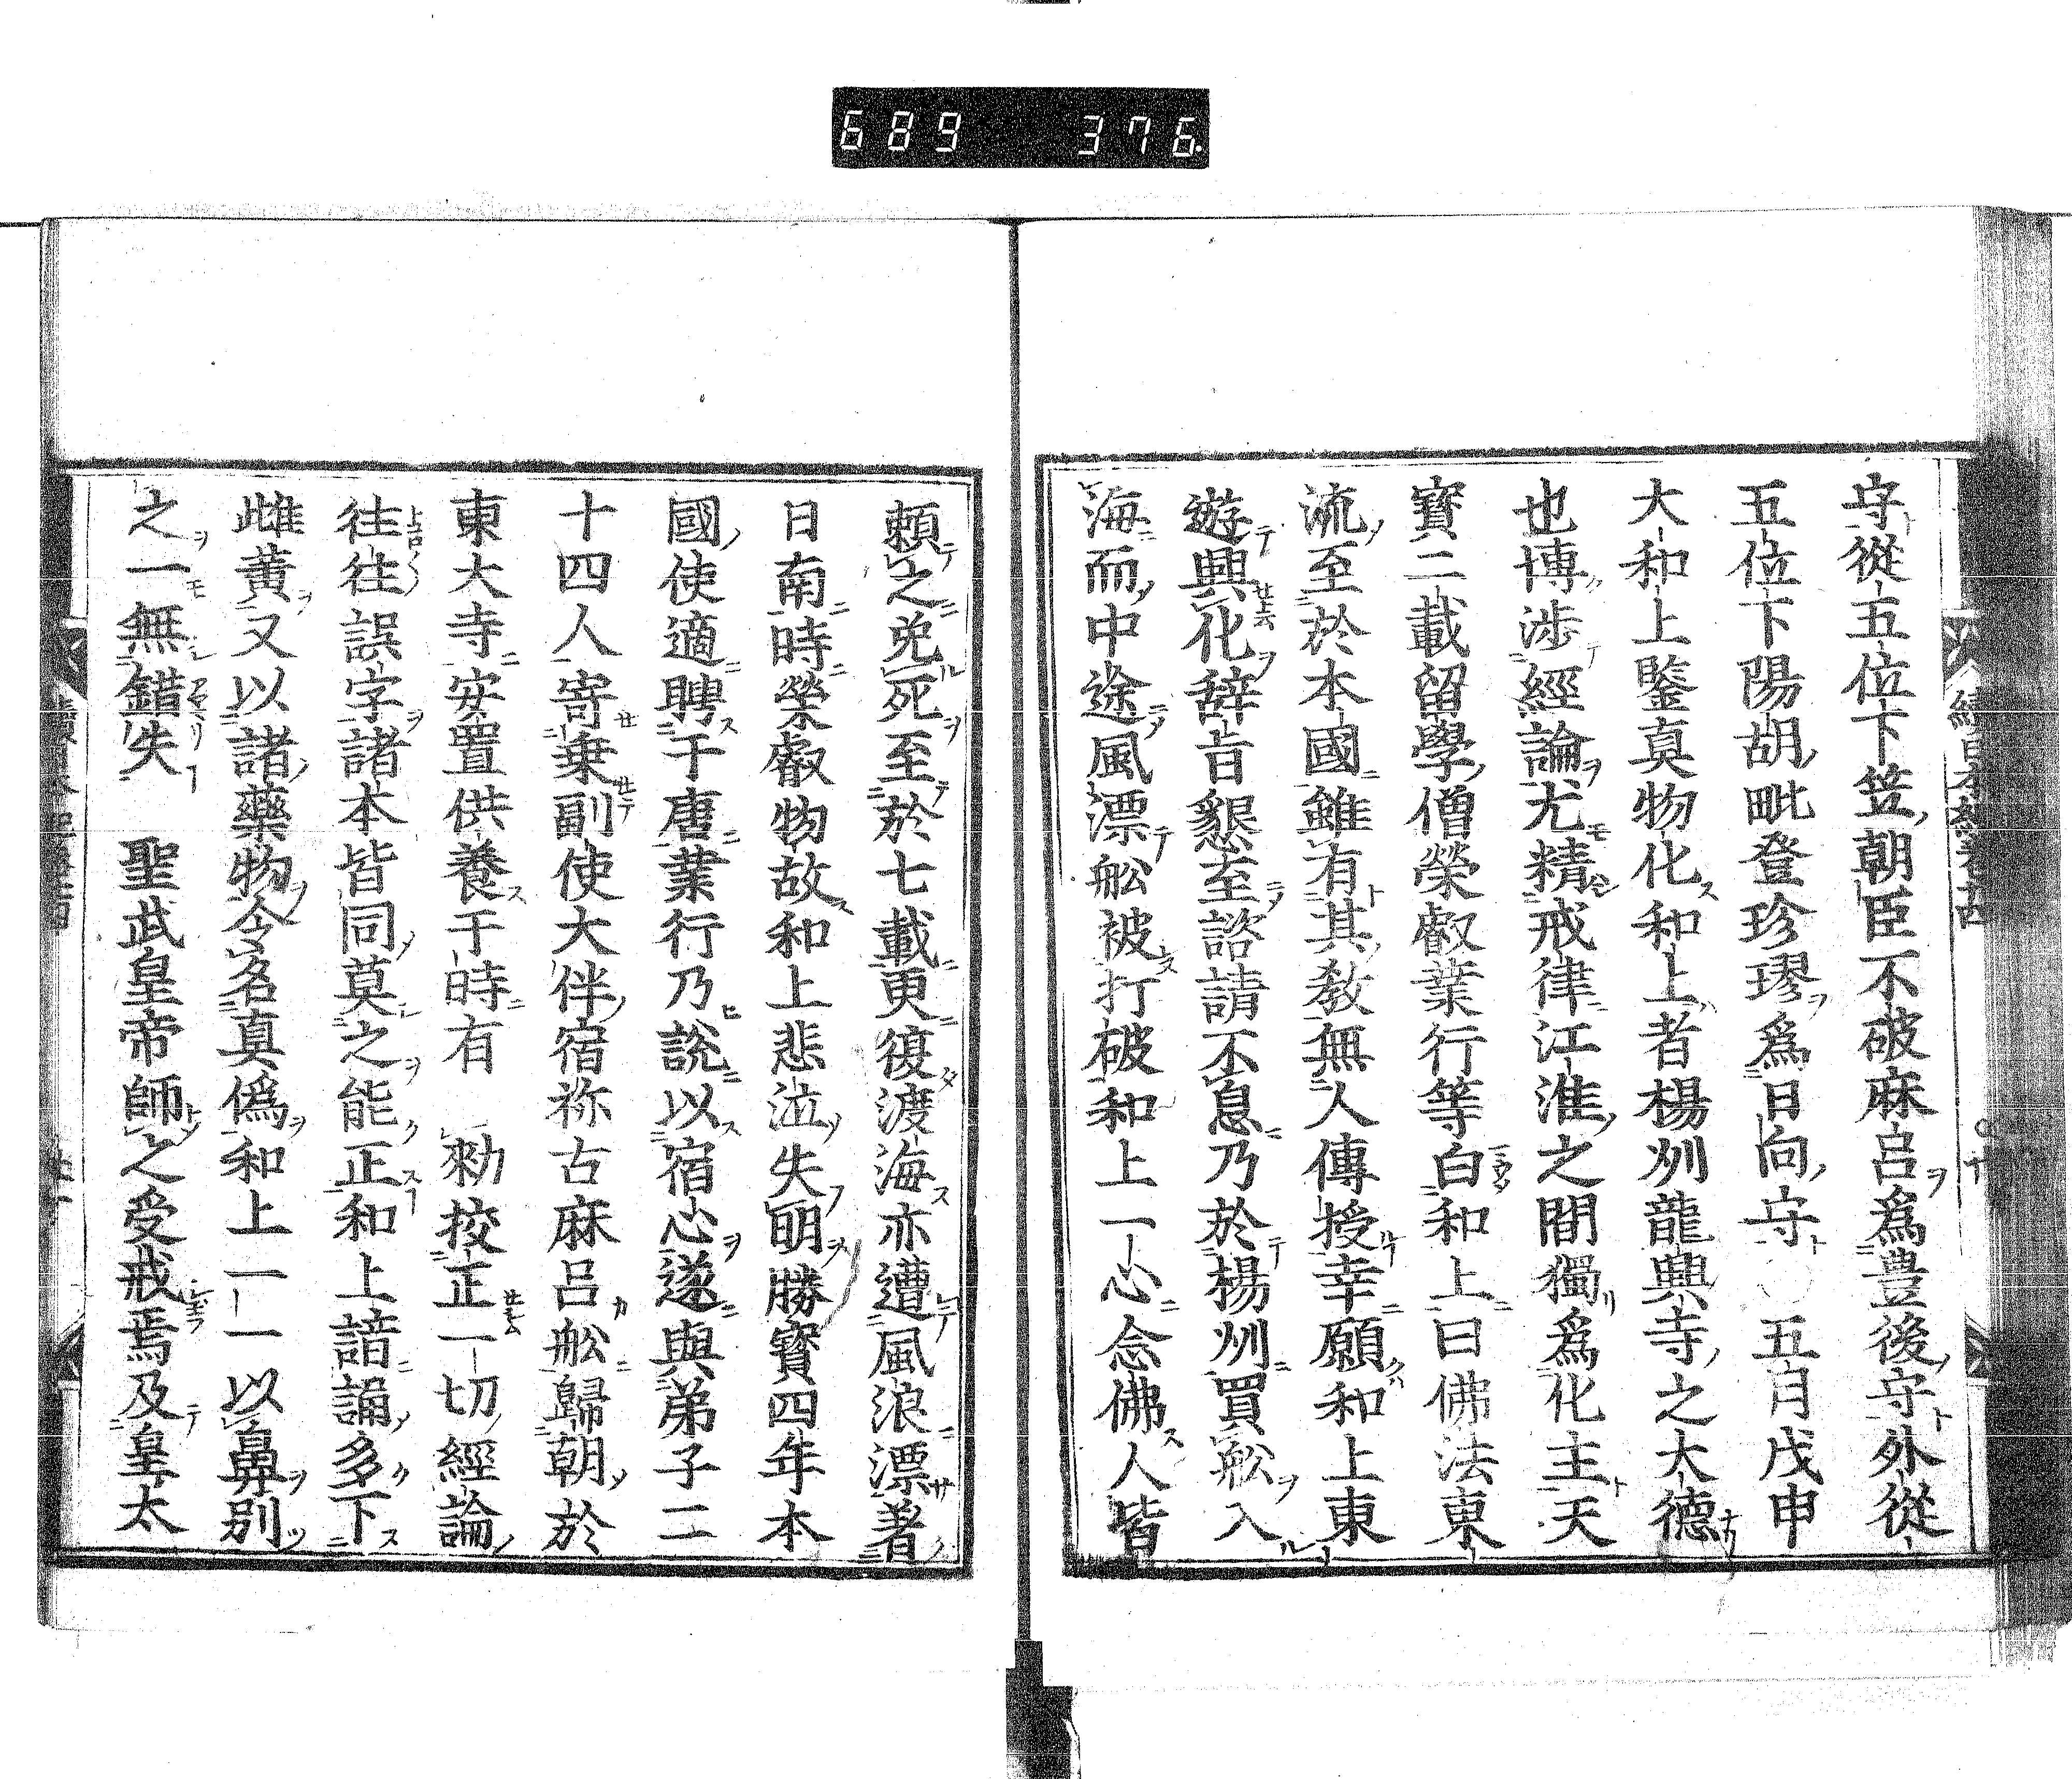 689 376
守從五位下笠朝臣不破麻呂爲豊後守外從
五位下陽胡毗登珍璆爲日向守〇五月戊申
大和上鑒真物化和上者楊州龍興寺之大德
也博渉經論尤精戒律江淮之間獨爲化主天
寳二載留學僧榮叡業行等白和上曰佛法東
流至於本國雖有其教無人傳授幸願和上東
遊興化辞旨懇至諮請不息乃於楊州買舩入
海而中途風漂舩被打破和上一心念佛人皆
頼之免死至於七載更復渡海亦遭風浪漂著
日南時榮叡物故和上悲泣失明勝寳四年本
國使適聘于唐業行乃說以宿心遂與弟子二
十四人寄乗副使大伴宿祢古麻呂舩歸朝於
東大寺安置供養于時有 勑挍正一切經論
往往誤字諸本皆同莫之能正和上諳誦多下
雌黄又以諸藥物令名真僞和上一一以鼻別
之一無錯失 聖武皇帝師之受戒焉及皇太